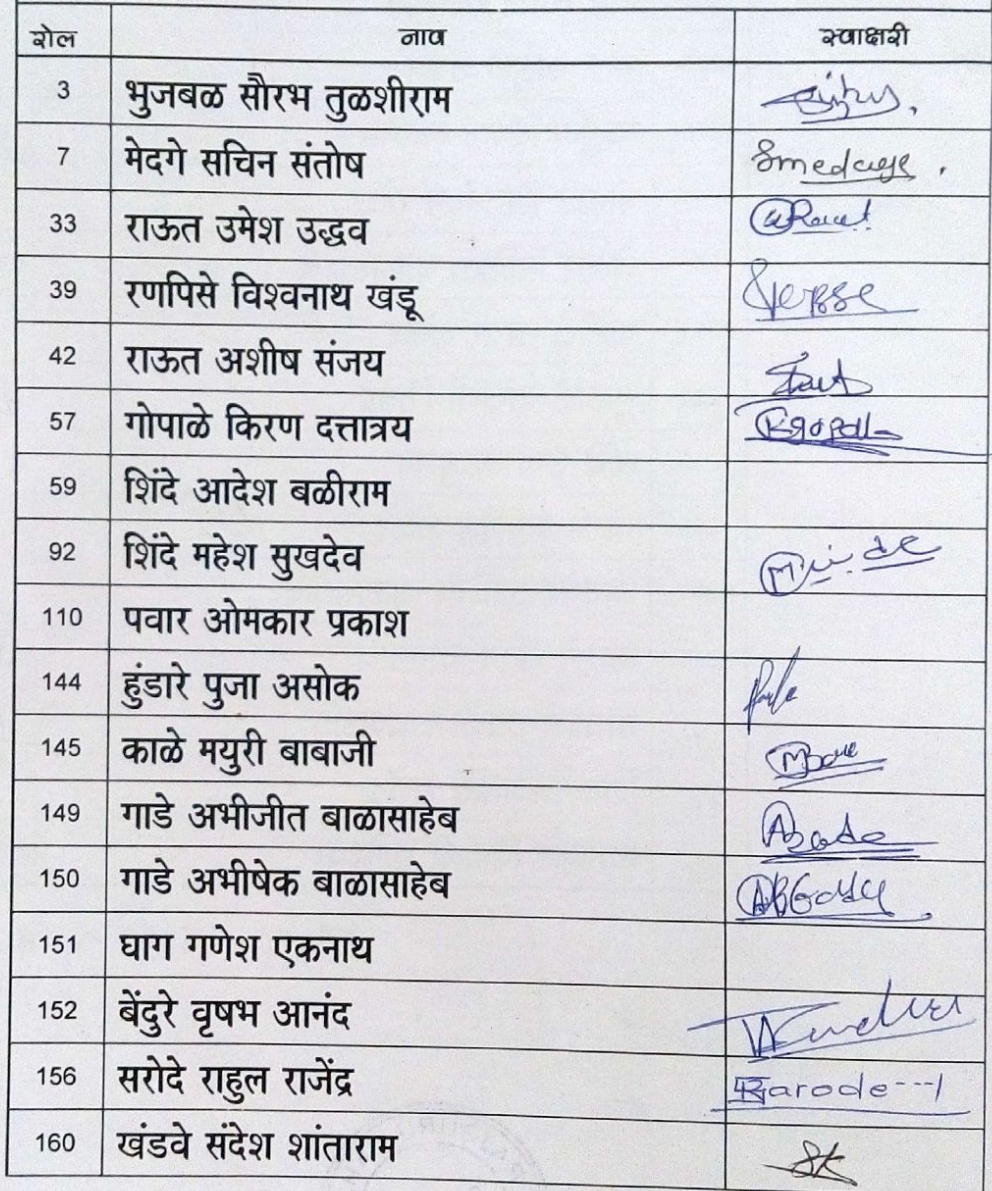 रोल नाव स्वाक्षरी
3 भुजबळ सौरभ तुळशीराम
7 मेदगे सचिन संतोष Smedage .
33 राऊत उमेश उद्धव URaut
39 रणपिसे विश्वनाथ खंडू
42 राऊत अशीष संजय
57 गोपाळे किरण दत्तात्रय Kgopal
59 शिंदे आदेश बळीराम
92 शिंदे महेश सुखदेव
110 पवार ओमकार प्रकाश
144 हुंडारे पुजा असोक
145 काळे मयुरी बाबाजी
149 गाडे अभीजीत बाळासाहेब
150 गाडे अभीषेक बाळासाहेब
151 घाग गणेश एकनाथ
152 बेंदुरे वृषभ आनंद
156 सरोदे राहुल राजेंद्र
160 खंडवे संदेश शांताराम SK